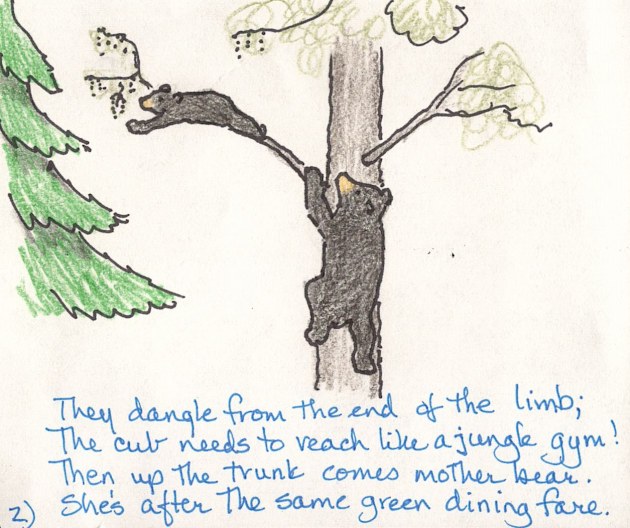 They dangle from the end of the limb;
The cub needs to reach like a jungle gym!
Then up the trunk comes mother bear.
2) She's after the same green dining fare.